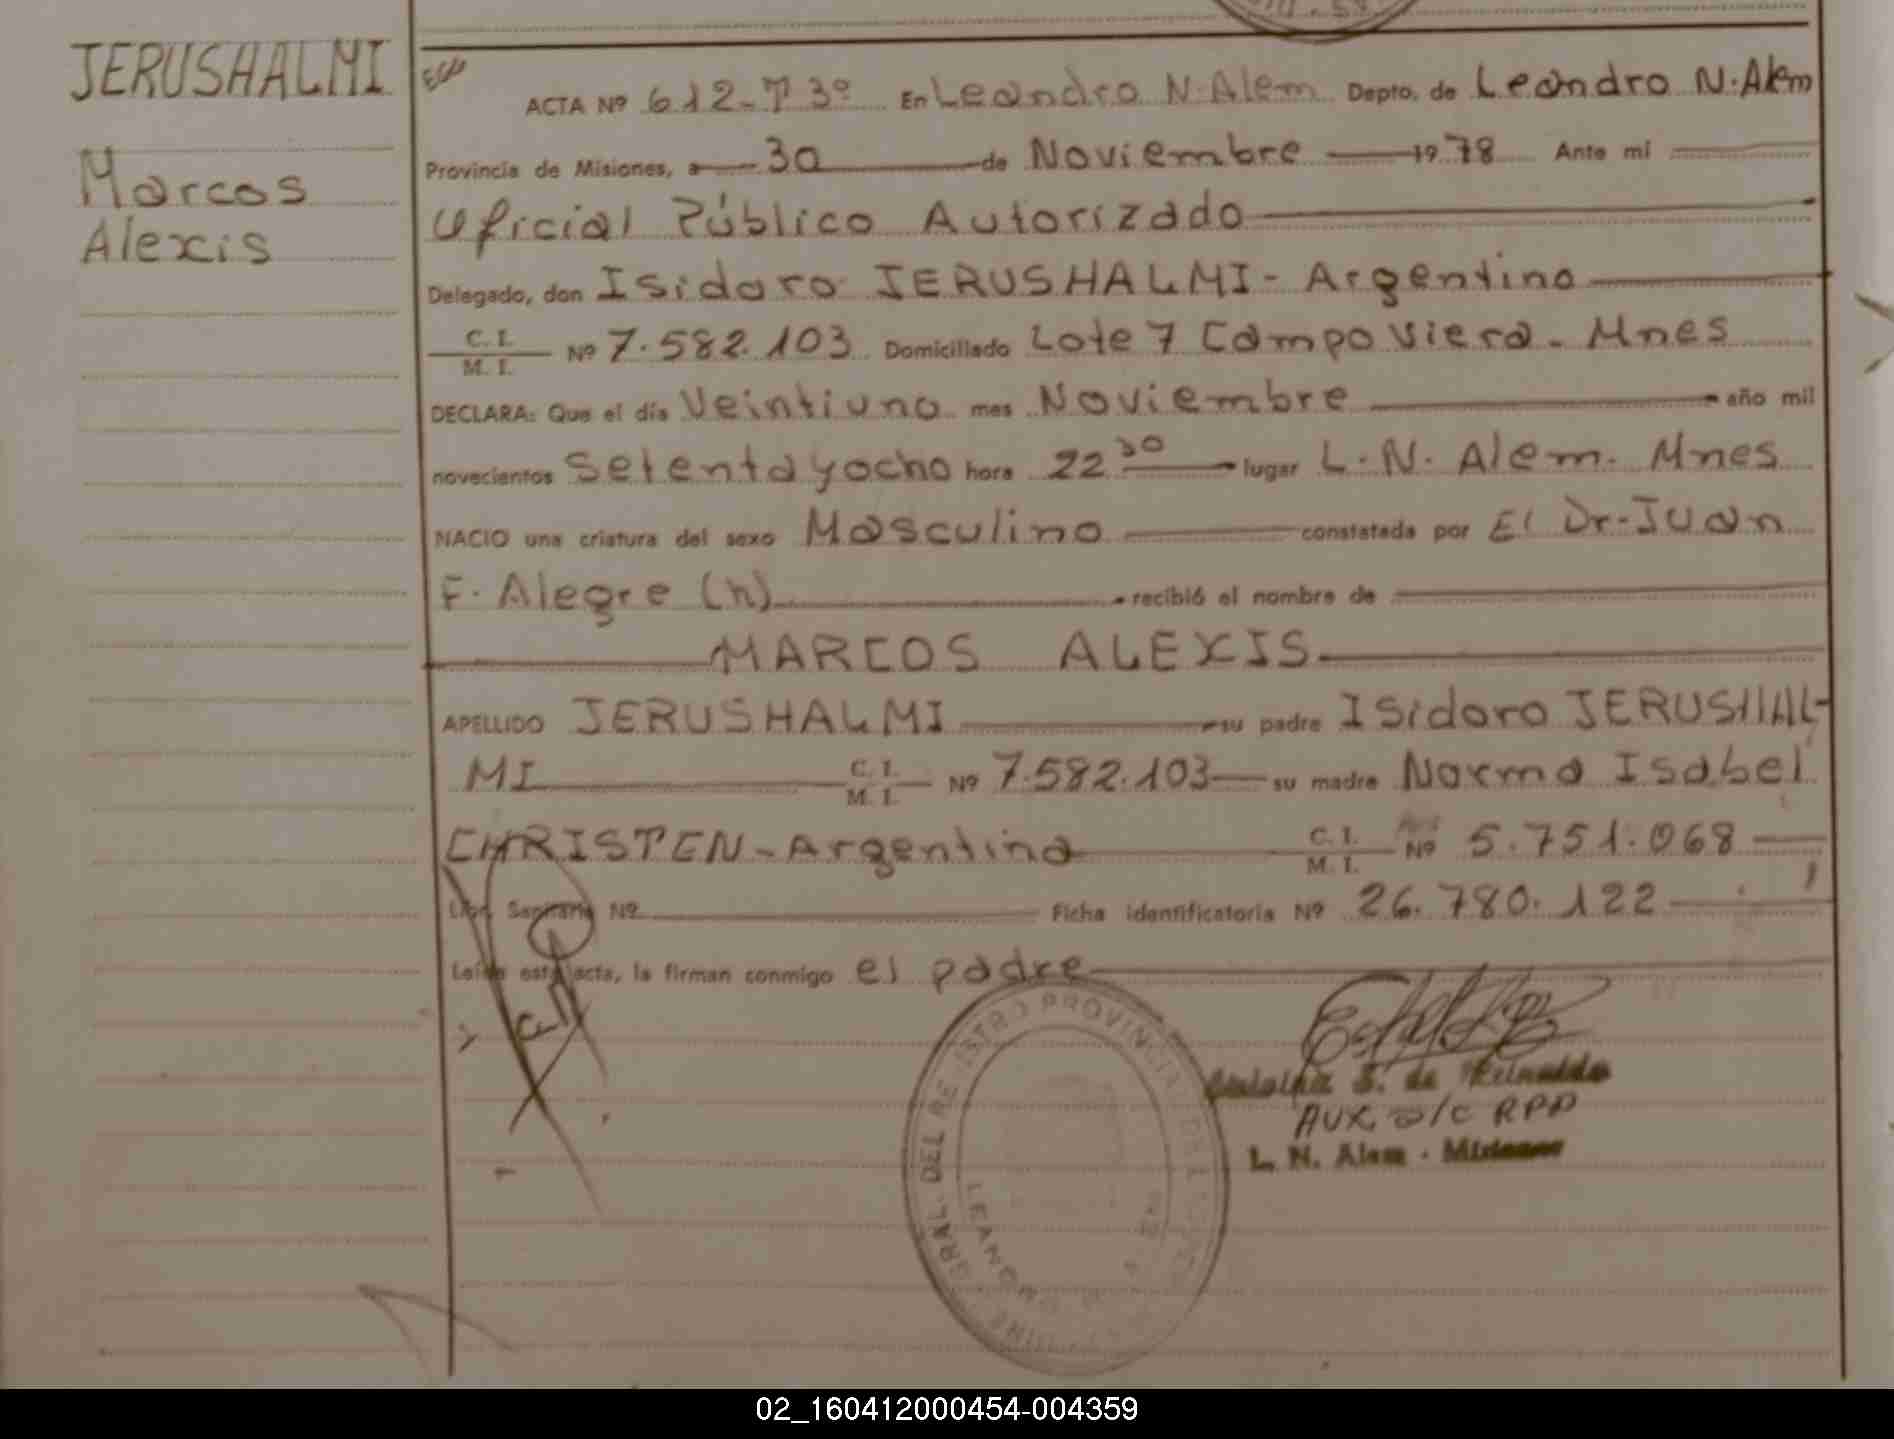 JERUSHALMI
Marcos
Alexis
ACTA Nº 612-Tº 3º En Leandro N. Alem Depto. de Leandro N. Alem
Provincia de Misiones, a 30 de Noviembre 1978 Ante mi
Oficial Público Autorizado
Delegado, don Isidoro JERUSHALMI - Argentino
C. I. M. I. Nº 7.582.103 Domiciliado Lote 7 Campo Viera - Mnes
DECLARA: Que el día Veintiuno mes Noviembre año mil
novecientos Setenta y ocho hora 22 30 lugar L. N. Alem. Mnes
NACIO una criatura del sexo Masculino constatada por El Dr. Juan
F. Alegre (h) recibió el nombre de
MARCOS ALEXIS
APELLIDO JERUSHALMI su padre Isidoro JERUSHAL-
MI C. I. M. I. Nº 7.582.103 su madre Norma Isabel
CHRISTEN - Argentina C. I. M. I. Nº 5.751.068
Libr. Sanitaria Nº Ficha identificatoria Nº 26.780.122
Leída esta acta, la firman conmigo el padre
GRAL. DEL REGISTRO PROVINCIAL DE
LEANDRO N.
S. de Reinaldo
AUX a/c RPP
L. N. Alem - Misiones
02_160412000454-004359